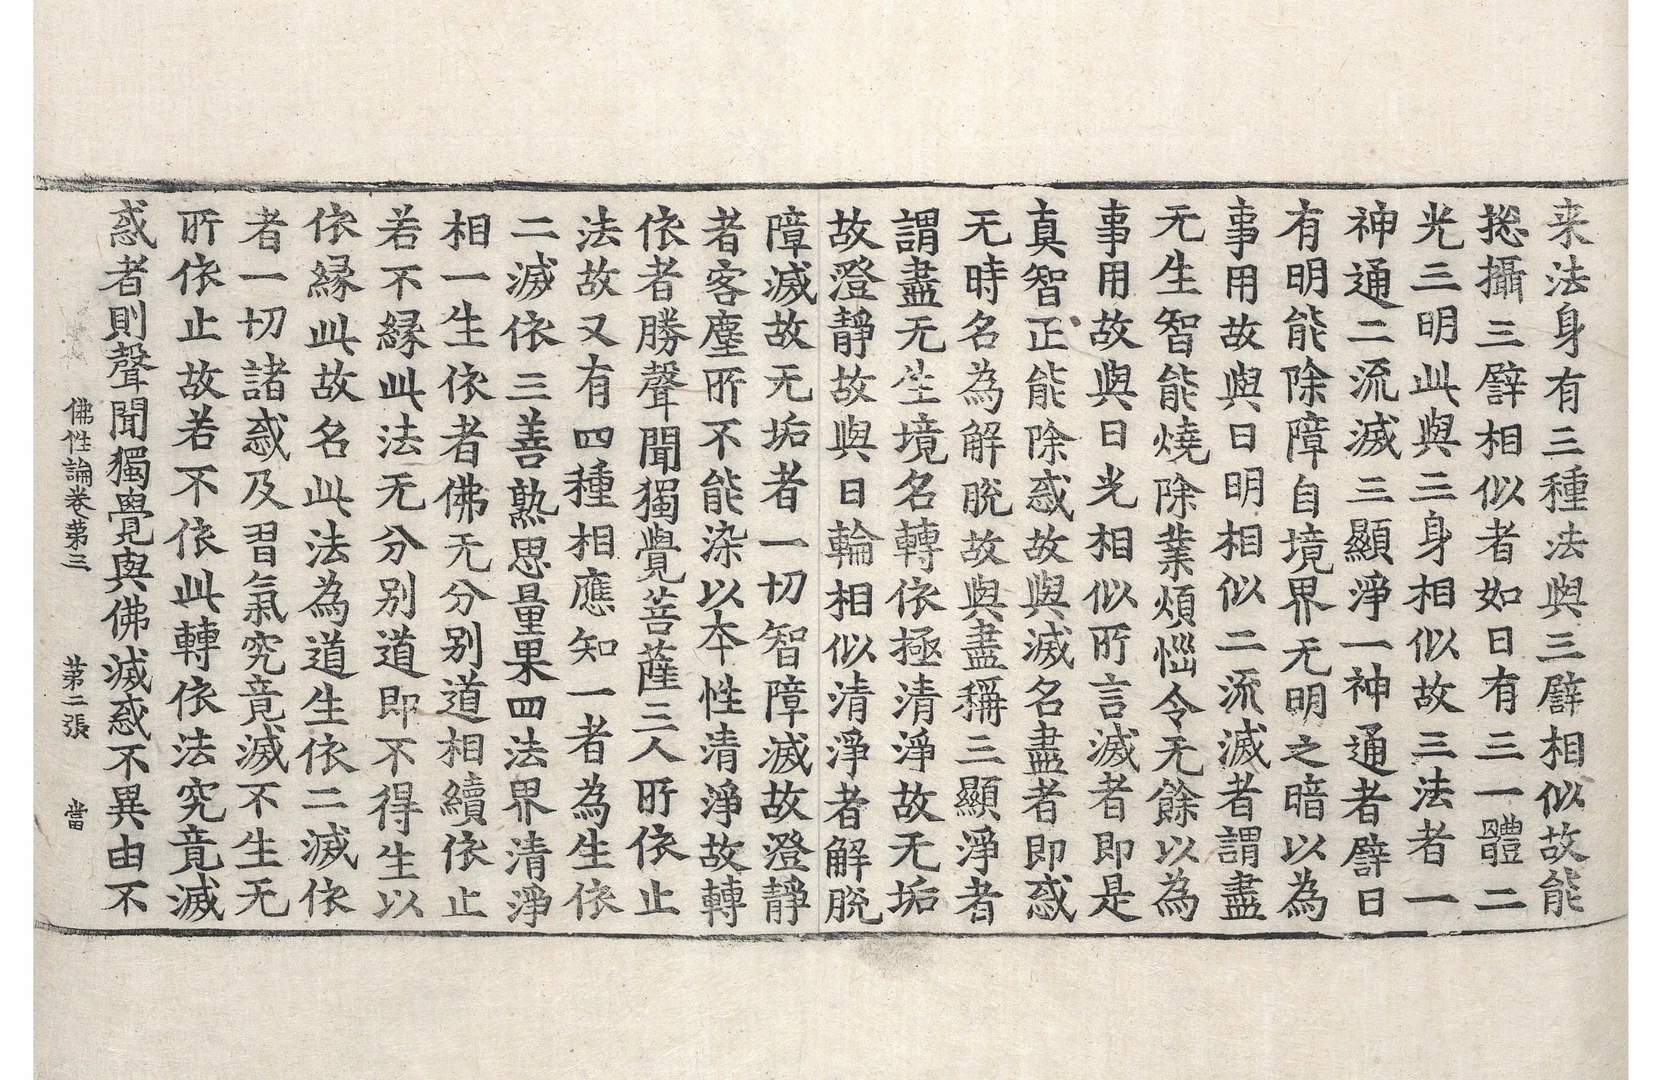 来法身有三種法與三譬相似故能
捴攝三譬相似者如日有三一體二
光三明此與三身相似故三法者一
神通二流滅三顯淨一神通者譬日
有明能除障自境界无明之暗以為
事用故與日明相似二流滅者謂盡
无生智能燒除業煩惱令无餘以為
事用故與日光相似所言滅者即是
真智正能除惑故與滅名盡者即惑
无時名為解脫故與盡稱三顯淨者
謂盡无生境名轉依極清淨故无垢
故澄靜故與日輪相似清淨者解脫
障滅故无垢者一切智障滅故澄靜
者客塵所不能染以本性清淨故轉
依者勝聲聞獨覺菩薩三人所依止
法故又有四種相應知一者為生依
二滅依三善熟思量果四法界清淨
相一生依者佛无分別道相續依止
若不緣此法无分別道即不得生以
依緣此故名此法為道生依二滅依
者一切諸惑及習氣究竟滅不生无
所依止故若不依此轉依法究竟滅
惑者則聲聞獨覺與佛滅惑不異由不
佛性論卷第三　第二張　當